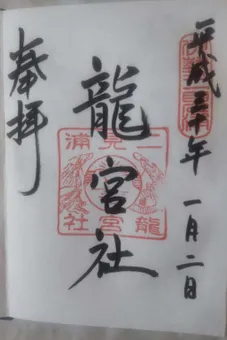 平成三十年 一月二日
龍宮社
二見浦
龍宮社
奉拝